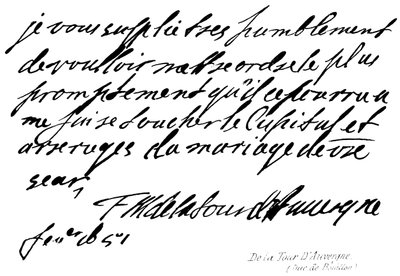 je vous suplie tres humblement
de vouloir mettre ordre le plus
promptement qu'il ce pourra a
me faire toucher le Capital et
arerages du mariage de vr̄e
seur
F M de la tour d'auvergne
feuer 1651
De la Tour D'Auvergne.
(Duc de Bouillon)